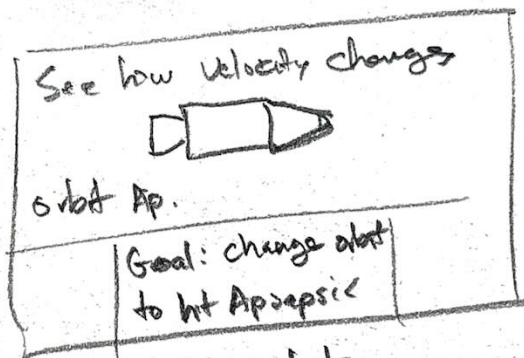 See how velocity changes
orbit Ap.
Goal: change orbit
to hit